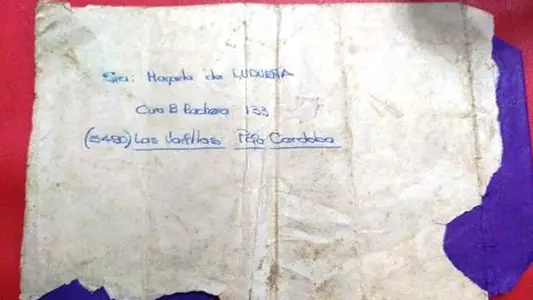 Sra: Marcela de LUDUEÑA
Cura B. Rachera 133
(5480) Las Varillas Pcia Cordoba